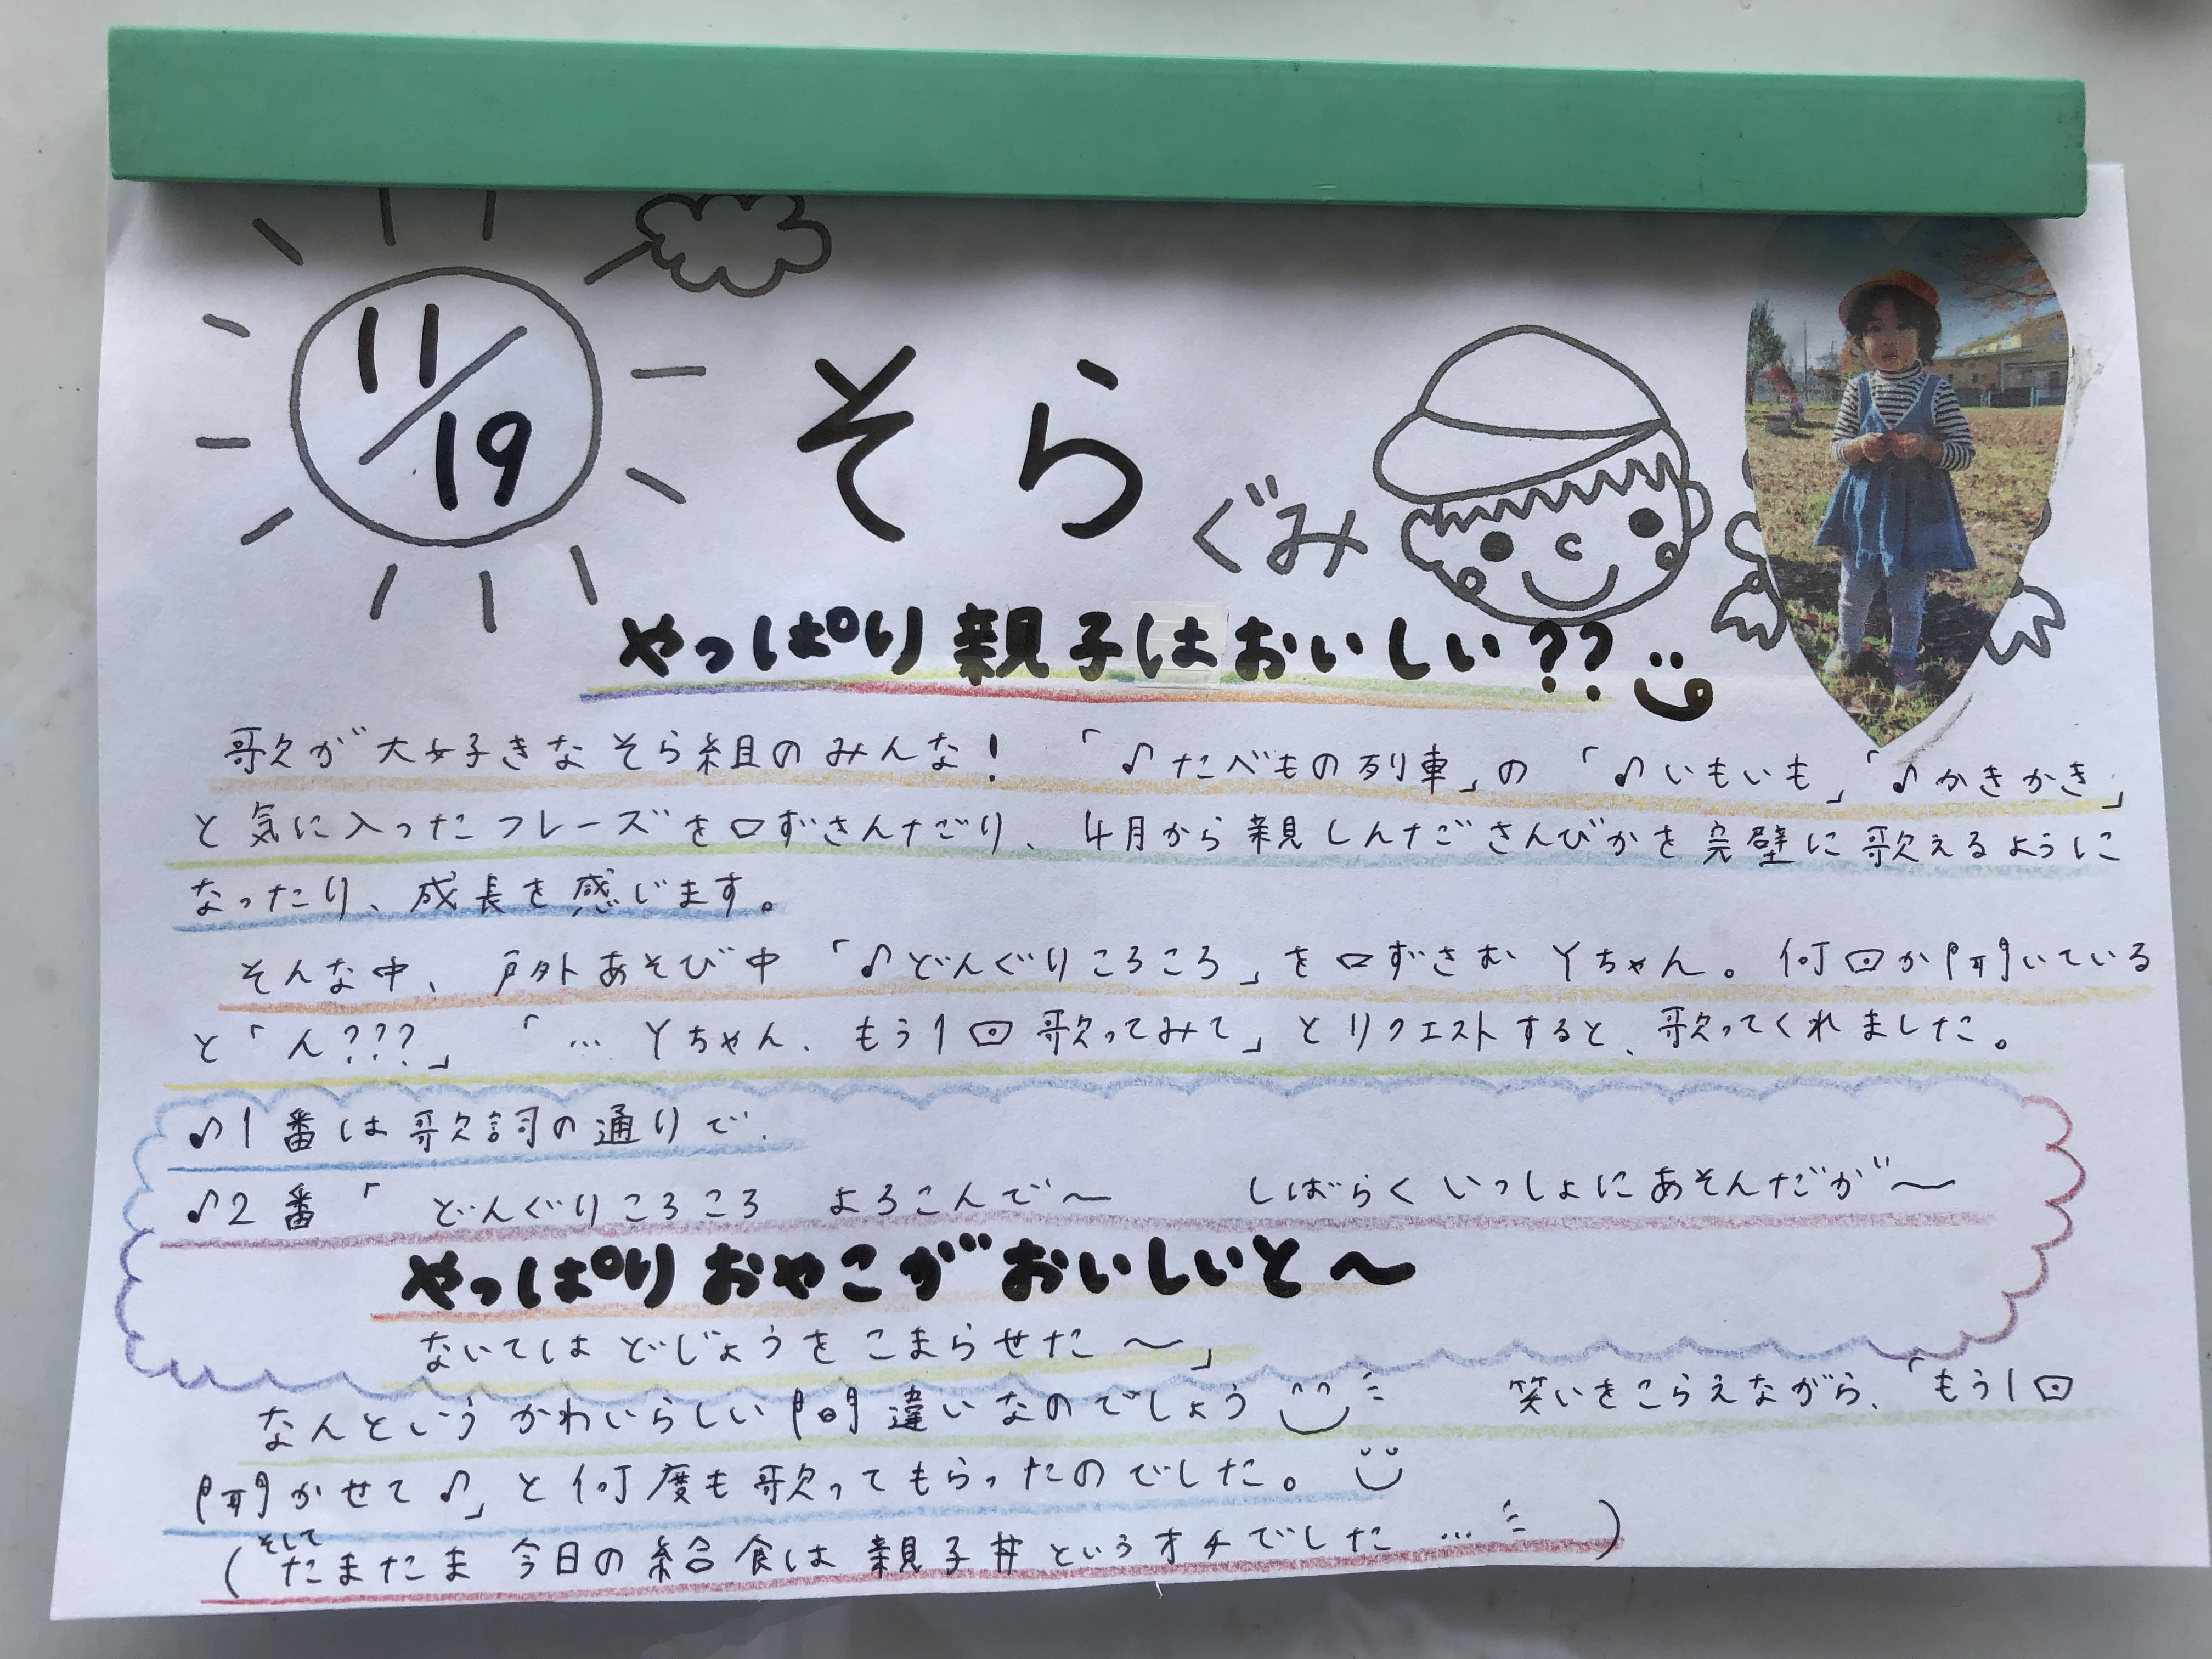 11/19
そら ぐみ
やっぱり親子はおいしい??
歌が大好きなそら組のみんな! 「♪たべもの列車」の「♪いもいも」「♪かきかき」
と気に入ったフレーズを口ずさんだり、4月から親しんださんびかを完璧に歌えるように
なったり、成長を感じます。
そんな中、戸外あそび中「♪どんぐりころころ」を口ずさむYちゃん。何回か聞いている
と「ん???」 「…Yちゃん、もう1回歌ってみて」とリクエストすると、歌ってくれました。
♪1番は歌詞の通りで、
♪2番「どんぐりころころ よろこんで〜 しばらくいっしょにあそんだが〜
やっぱりおやこがおいしいと〜
ないてはどじょうをこまらせた〜」
なんというかわいらしい間違いなのでしょう 笑いをこらえながら、「もう1回
聞かせて♪」と何度も歌ってもらったのでした。
そして
(たまたま今日の給食は親子丼というオチでした…)